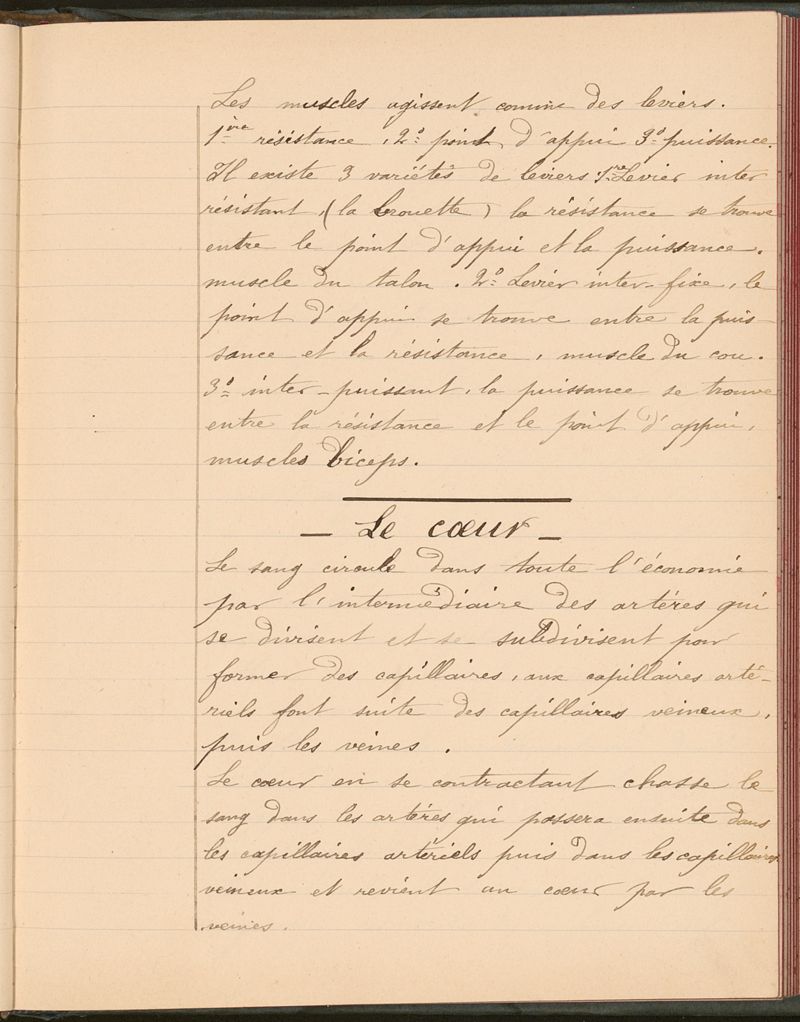 Les muscles agissent comme des leviers.
1ère résistance, 2º point d'appui 3º puissance.
Il existe 3 variétés de leviers : 1re Levier inter
résistant, (la brouette) la résistance se trouve
entre le point d'appui et la puissance.
muscle du talon. 2º Levier inter-fixe, le
point d'appui se trouve entre la puis-
sance et la résistance, muscle du cou.
3º inter-puissant, la puissance se trouve
entre la résistance et le point d'appui,
muscles biceps.
— Le cœur —
Le sang circule dans toute l'économie
par l'intermédiaire des artères qui
se divisent et se subdivisent pour
former des capillaires, aux capillaires arté-
riels font suite des capillaires veineux,
puis les veines.
Le cœur en se contractant chasse le
sang dans les artères qui passera ensuite dans
les capillaires artériels puis dans les capillaires
veineux et revient au cœur par les
veines.